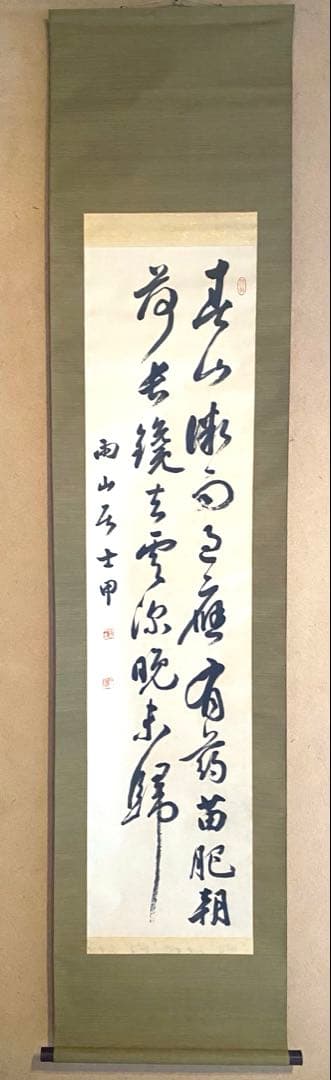 春山微雨過應有葯苗肥朝
荷長鑱去雲深晚未歸
雨山居士甲